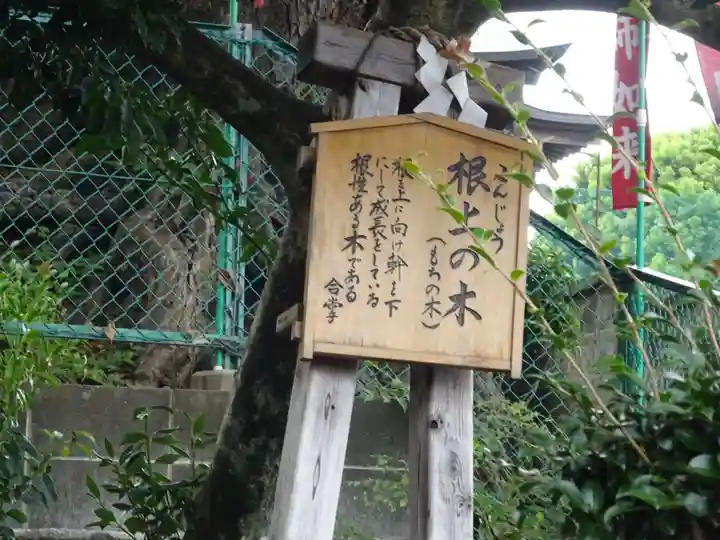 こんじょう
根上の木
(もちの木)
根を上に向け幹を下
にして成長をしている
根性ある木である
合掌
師如来